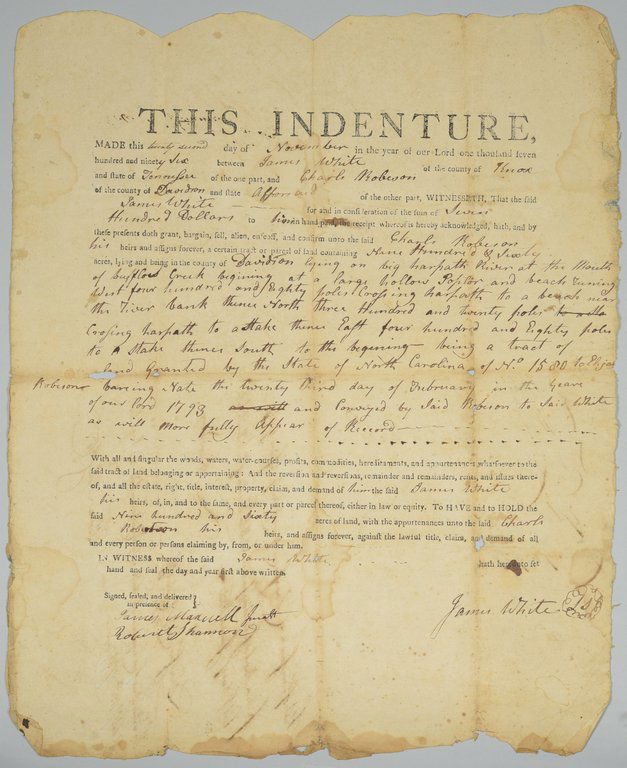 THIS INDENTURE,
MADE this twenty second day of November in the year of our Lord one thousand seven
hundred and ninety Six between James White of the county of Knox
and state of Tennessee of the one part, and Charls Robeson
of the county of Davidson and state Afforsaid of the other part, WITNESSETH, That the said
James White for and in consideration of the sum of Seven
Hundred Dollars to him in hand paid, the receipt whereof is hereby acknowledged, hath, and by
these presents doth grant, bargain, sell, alien, enfeoff, and confirm unto the said Charls Robeson
his heirs and assigns forever, a certain tract or parcel of land containing Nine Hundred & Sixty
acres, lying and being in the county of Davidson lying on big harpath River at the Mouth
of Creek begining at a large hollow Poplor and beach runing
West four hundred and Eighty poles Crossing harpath to a beach near
the River bank thence North three Hundred and twenty poles
Crossing harpath to a Stake thence East four hundred and Eighty poles
to A Stake thence South to the begining being a tract of
land Granted by the State of North Carolina of No. 1580 to Elijah
Robeson bearing Date the twenty third day of February in the Yeare
of our Lord 1793 and Conveyed by Said Robeson to Said White
as will More fully Appear of Record
With all and singular the woods, waters, water-courses, profits, commodities, hereditaments, and appurtenances whatsoever to the
said tract of land belonging or appertaining: And the reversion and reversions, remainder and remainders, rents, and issues there-
of, and all the estate, right, title, interest, property, claim, and demand of him the said James White
his heirs, of, in, and to the same, and every part or parcel thereof, either in law or equity. To HAVE and to HOLD the
said Nine hundred and Sixty acres of land, with the appurtenances unto the said Charls
Robeson his heirs, and assigns forever, against the lawful title, claim, and demand of all
and every person or persons claiming by, from, or under him.
IN WITNESS whereof the said James White hath hereunto set
hand and seal the day and year first above written.
Signed, sealed, and delivered
in presence of
James White
James Maxwell
Robert Shannon